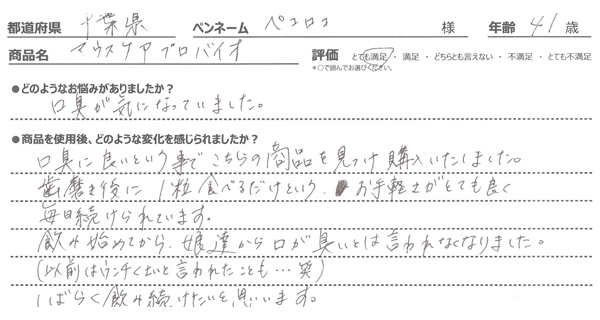 都道府県 千葉県 ペンネーム ペコロコ 様 年齢 41 歳
商品名 マウスケアプロバイオ 評価 とても満足 ・ 満足 ・ どちらとも言えない ・ 不満足 ・ とても不満足
＊○で囲んでお選びください。
●どのようなお悩みがありましたか？
口臭が気になっていました。
●商品を使用後、どのような変化を感じられましたか？
口臭に良いという事でこちらの商品を見つけ購入いたしました。
歯磨き後に1粒食べるだけという、お手軽さがとても良く
毎日続けられています。
飲み始めてから、娘達から口が臭いとは言われなくなりました。
（以前はウンチくさいと言われたことも…笑）
しばらく飲み続けたいと思います。